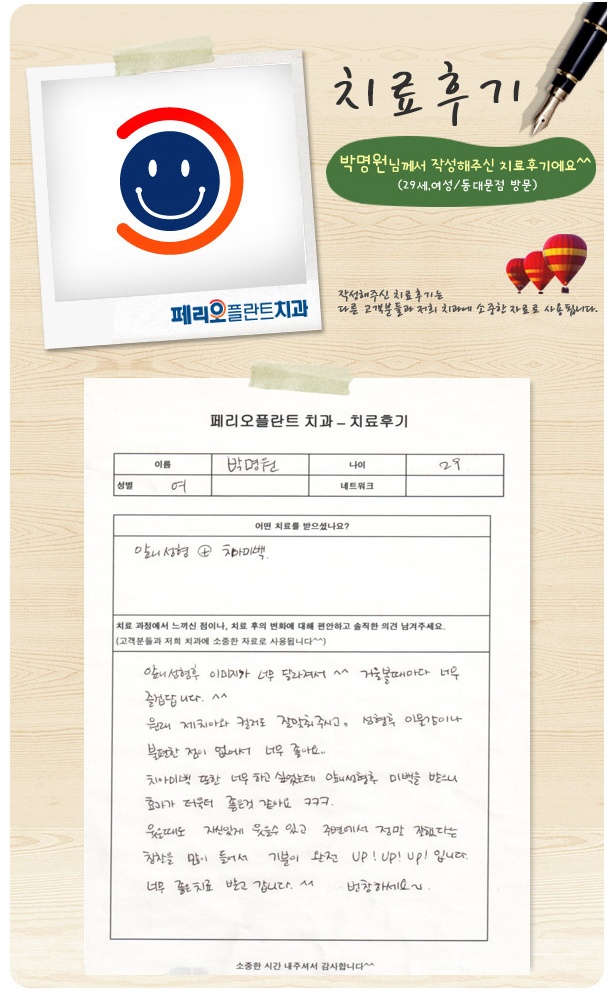 치료후기
박명원님께서 작성해주신 치료후기에요^^
(29세,여성/동대문점 방문)
작성해주신 치료후기는
다른 고객분들과 저희 치과에 소중한 자료로 사용됩니다.
페리오플란트치과
페리오플란트 치과 – 치료후기
이름 박명원 나이 29.
성별 여 네트워크
어떤 치료를 받으셨나요?
앞니성형 ⊕ 치아미백.
치료 과정에서 느끼신 점이나, 치료 후의 변화에 대해 편안하고 솔직한 의견 남겨주세요.
(고객분들과 저희 치과에 소중한 자료로 사용됩니다^^)
앞니성형후 이미지가 너무 달라져서 ^^ 거울볼때마다 너무
즐겁답니다. ^^
원래 제치아와 컬러도 잘맞춰주시고. 성형후 이물감이나
불편한 점이 없어서 너무 좋아요..
치아미백 또한 너무 하고 싶었는데 앞니성형후 미백을 받으니
효과가 더욱더 좋은것 같아요 ㅋㅋㅋ.
웃을때도 자신있게 웃을수 있고 주변에서 정말 잘했다는
칭찬을 많이 들어서 기분이 완전 UP! UP! UP! 입니다.
너무 좋은치료 받고 갑니다. ^^ 번창하세요~.
소중한 시간 내주셔서 감사합니다^^